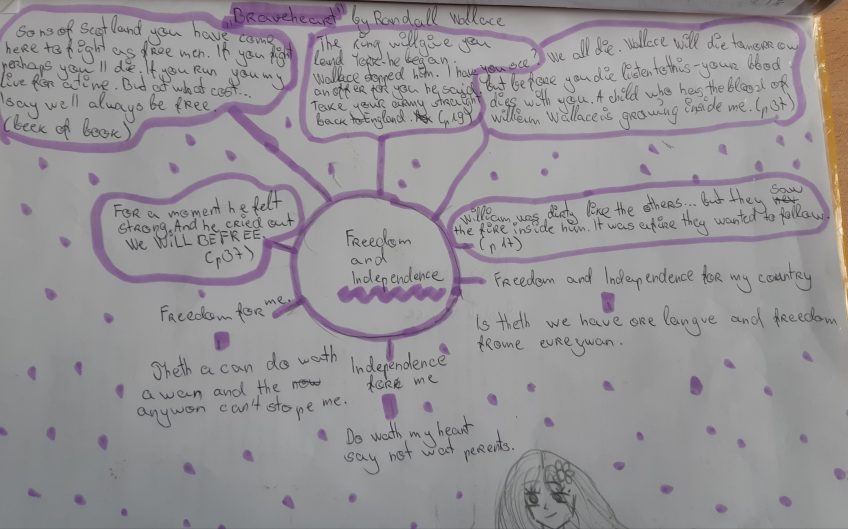 „Braveheart" by Randall Wallace
Sons of Scotland you have come
here to fight as free men. If you fight
perhaps you'll die. If you run you my
live for a time. But at what cost...
I say we'll always be free.
(beek of book)
The king will give you
land There he began.
Wallace stopped him. I have
an offer for you he said,
Take your army straight
back to England. (p 19)
you see? We all die. Wallace will die tomorrow
but before you die listen to this - your blood
dies with you. A child who has the blood of
William Wallace is growing inside me. (p 37)
For a moment he felt
strong. And he cried out
We WILL BE FREE.
(p 37)
Freedom
and
Independence
William was dirty like the others... but they saw
the fire inside him. It was a fire they wanted to follow.
(p 17)
Freedom for me.
Theth a can do wath
a wan and the
anywon can't stope me.
Independence
fore me
Do wath my heart
say not wat perents.
Freedom and Independence for my country
Is theth we have ore langue and freedom
frome evreywan.